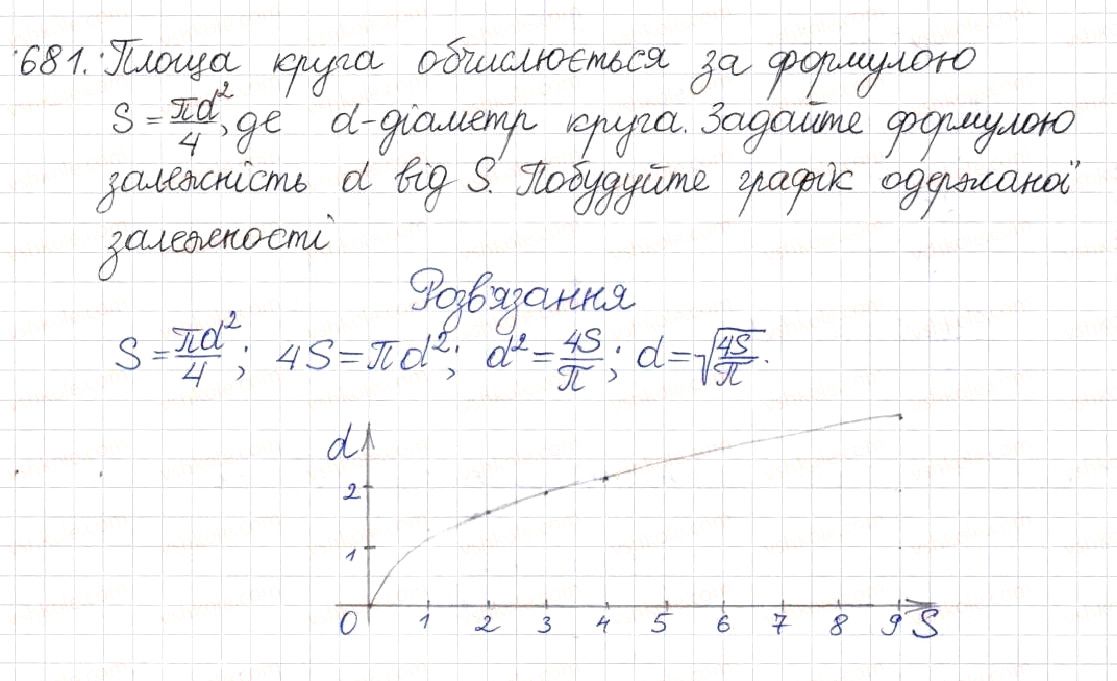 681. Площа круга обчислюється за формулою
S = πd²/4, де d-діаметр круга. Задайте формулою
залежність d від S. Побудуйте графік одержаної
залежності
Розв'язання
S = πd²/4; 4S = πd²; d² = 4S/π; d = √(4S/π).
d
2
1
0 1 2 3 4 5 6 7 8 9 S